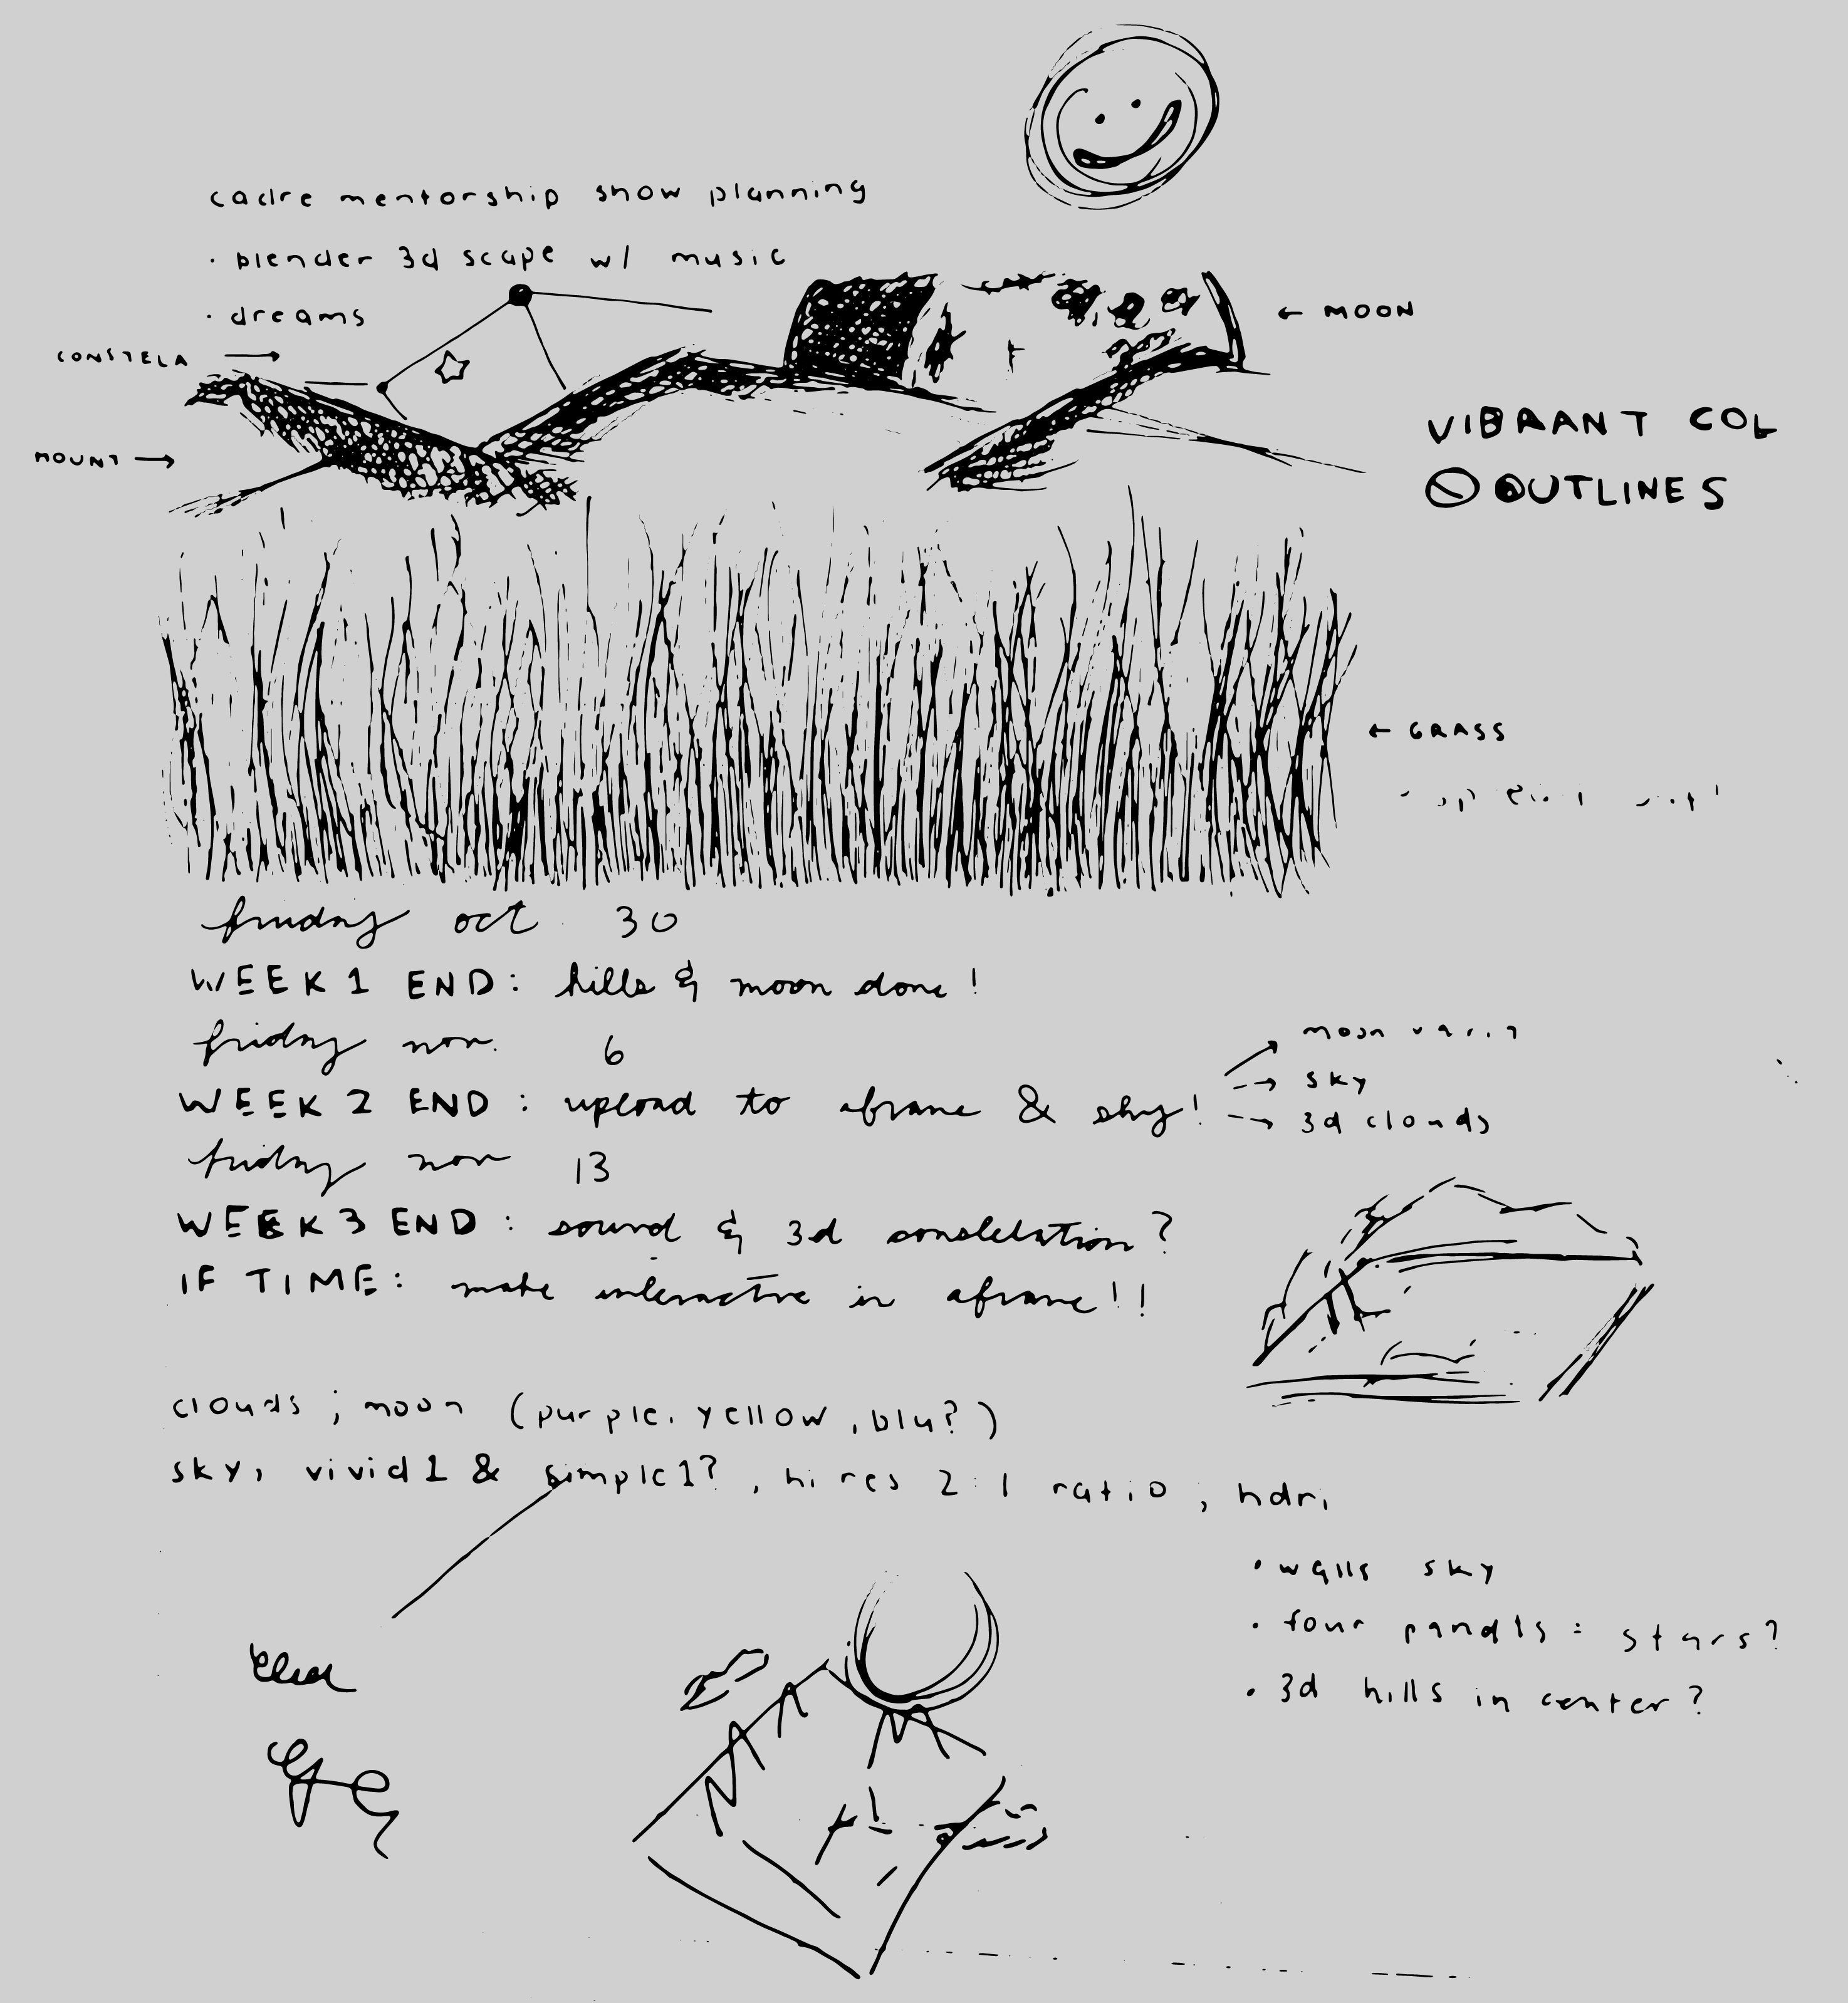 cadre mentorship show planning
· blender 3d scape w/ music
· dreams
CONSTELA →
← MOON
MOUNT →
VIBRANT COL
OUTLINES
← GRASS
friday oct 30
WEEK 1 END: hills & moon done!
friday nov. 6
WEEK 2 END: upload to aframe & sky!
→ moon
→ sky
→ 3d clouds
friday nov 13
WEEK 3 END: sound & 3d constellation?
IF TIME: make interactive in aframe!!
clouds; moon (purple, yellow, blu?)
sky, vivid1 & simple1?, hi res 2:1 ratio, hdri
· walls sky
· four panels: stars?
· 3d hills in center?